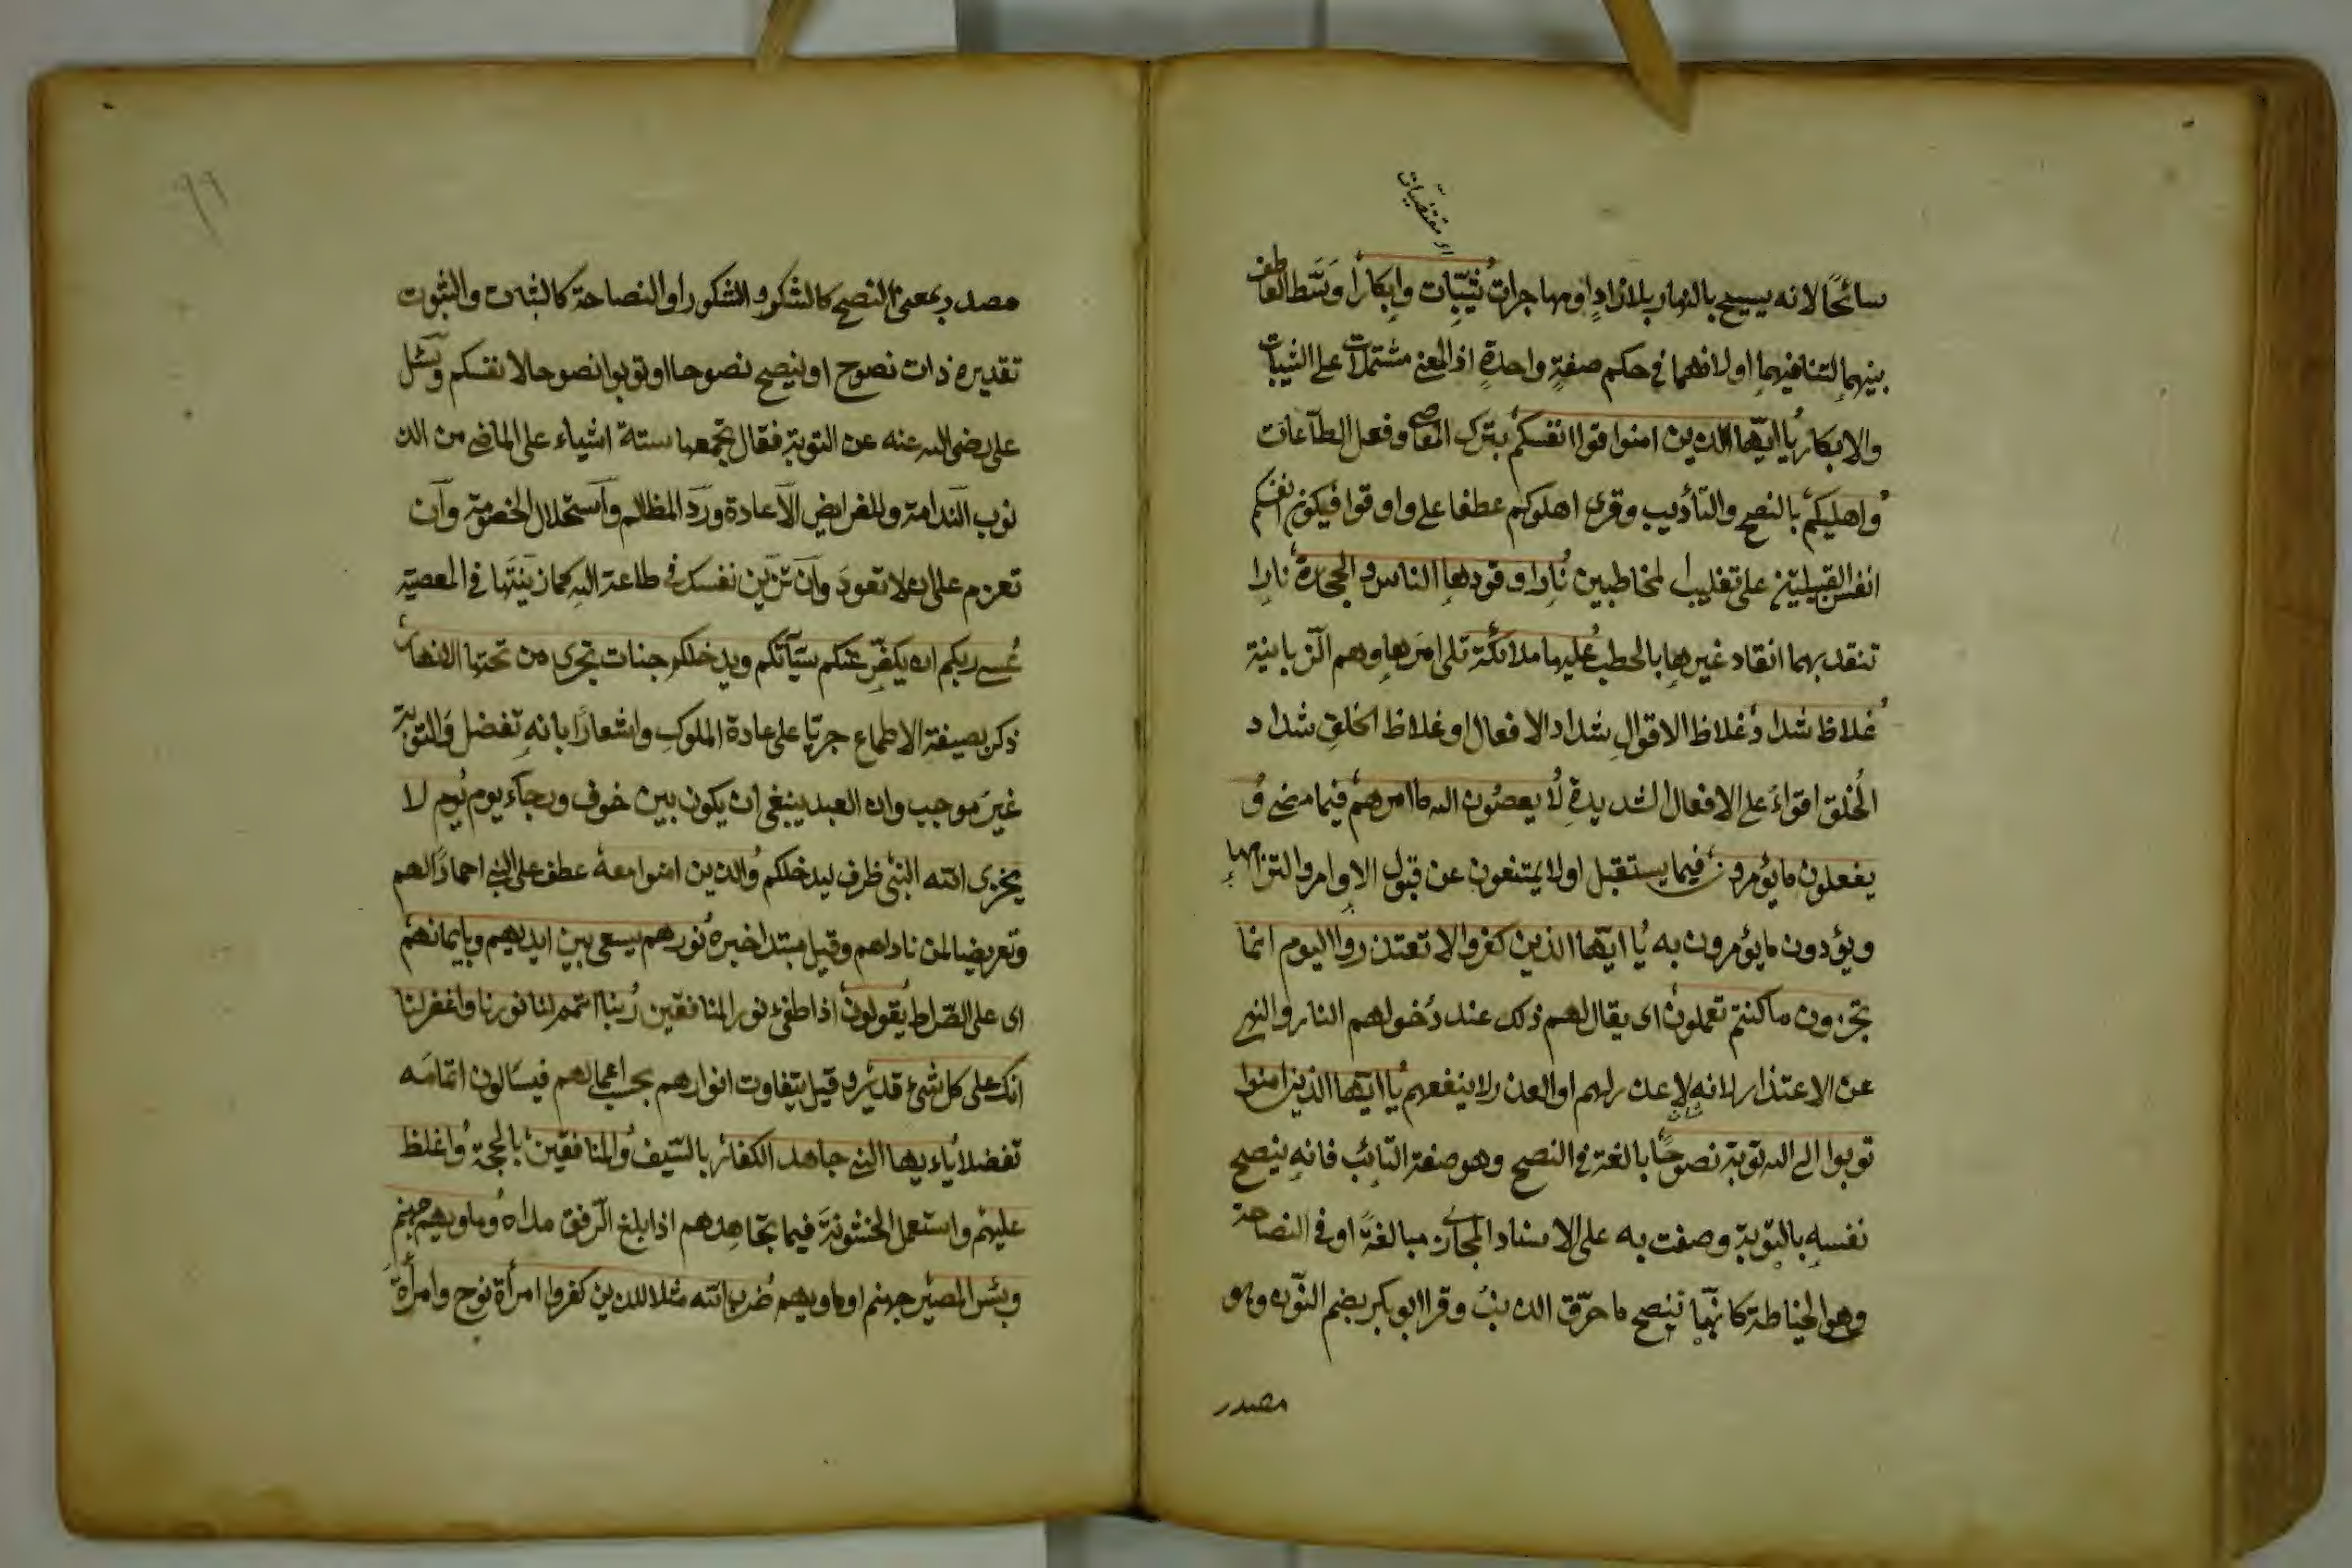 اى مقتضيات
سائحًا لانه يسيح بالنهار بلا زادٍ او مهاجرات ثيّبات وابكارا وسّط العاطف
بينهما لتنافيهما او لانهما فى حكم صفةٍ واحدةٍ اذ المعنى مشتملات على الثيبات
والابكار يا ايّها الذين امنوا قوا انفسكم بترك المعاصى وفعل الطاعات
واهليكم بالنصح والتأديب وقرئ اهلوكم عطفا على واو قوا فيكون انفسكم
انفس القبيلين على تغليب المخاطبين نارا وقودها الناس والحجارة نارا
تتقد بهما اتقاد غيرها بالحطب عليها ملائكة تلى امرها وهم الزبانية
غلاظ شداد غلاظ الاقوال شداد الافعال او غلاظ الخلق شداد
الخلق اقواء على الافعال الشديدة لا يعصون الله ما امرهم فيما مضى و
يفعلون ما يؤمرون فيما يستقبل او لا يمتنعون عن قبول الاوامر والتزامها
ويؤدون ما يؤمرون به يا ايّها الذين كفروا لا تعتذروا اليوم انما
تجزون ما كنتم تعملون اى يقال لهم ذلك عند دخولهم النار والنهى
عن الاعتذار لانه لا عذر لهم او العذر لا ينفعهم يا ايّها الذين امنوا
توبوا الى الله توبة نصوحًا بالغة فى النصح وهو صفة التائب فانه ينصح
نفسه بالتوبة وصفت به على الاسناد المجازى مبالغةً او فى النصاحة
وهو الخياطة كانّها تنصح ما خرّق الذنب وقرا ابو بكر بضم النون وهو
مصدر
٩٩
مصدر بمعنى النصح كالشكر والشكور او النصاحة كالثبات والثبوت
تقديره ذات نصوح او ينصح نصوحا او توبوا نصوحا لانفسكم وسئل
على رضى الله عنه عن التوبة فقال تجمعها ستة اشياء على الماضى من الذ
نوب الندامة وللفرايض الاعادة ورد المظالم واستحلال الخصومة وان
تعزم على ان لا تعود وان تزين نفسك فى طاعة الله كما زينتها فى المعصية
عسى ربكم ان يكفّر عنكم سيآتكم ويدخلكم جنات تجرى من تحتها الانهار
ذكر بصيغة الاطماع جريًا على عادة الملوك واشعارًا بانه تفضل والتوبة
غير موجب وان العبد ينبغى ان يكون بين خوف ورجاء يوم يوم لا
يخزى الله النبى ظرف ليدخلكم والذين امنوا معه عطف على النبى احمادًا لهم
وتعريضا لمن ناداهم وقيل مبتدا خبره نورهم يسعى بين ايديهم وبايمانهم
اى على الصراط يقولون اذا طفئ نور المنافقين ربنا اتمم لنا نورنا واغفر لنا
انك على كل شئ قدير وقيل يتفاوت انوارهم بحسب اعمالهم فيسالون اتمامه
تفضلا ياءيها النبى جاهد الكفار بالسّيف والمنافقين بالحجة واغلظ
عليهم واستعمل الخشونة فيما تجاهدهم اذا بلغ الرفق مداه وماويهم جهنم
وبئس المصير جهنم او ماويهم ضرب الله مثلا للذين كفروا امرأة نوح وامرأة